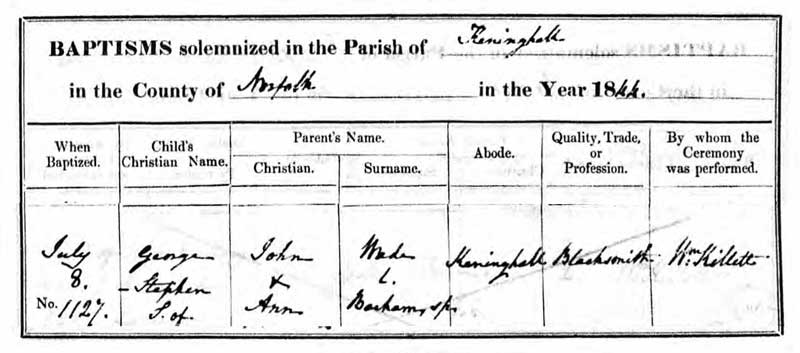 BAPTISMS solemnized in the Parish of Keninghall
in the County of Norfolk in the Year 1844.
When Baptized. Child's Christian Name. Parent's Name. Abode. Quality, Trade, or Profession. By whom the Ceremony was performed.
Christian. Surname.
July George John Wade Keninghall Blacksmith Wm Killett
8. Stephen &
No. 1127. S. of Ann